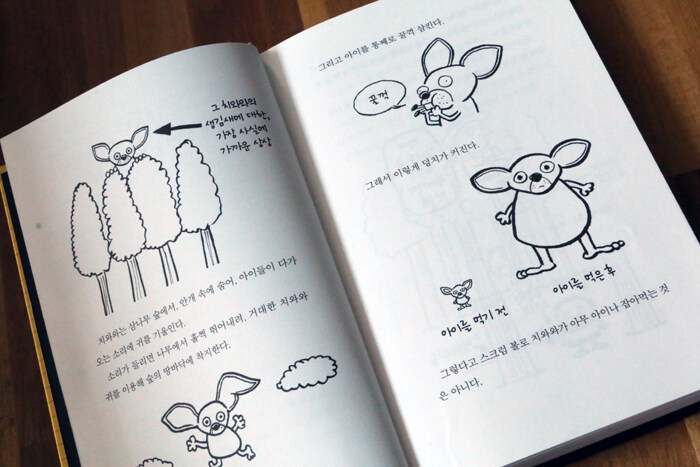 그 치와와의
생김새에 대한,
가장 사실에
가까운 상상
치와와는 삼나무 숲에서, 안개 속에 숨어, 아이들이 다가
오는 소리에 귀를 기울인다.
소리가 들리면 나무에서 훌쩍 뛰어내려, 거대한 치와와
귀를 이용해 숲의 땅바닥에 착지한다.
그리고 아이를 통째로 꿀꺽 삼킨다.
꿀꺽
그래서 이렇게 덩치가 커진다.
아이를 먹기 전
아이를 먹은 후
그렇다고 스크럼 볼로 치와와가 아무 아이나 잡아먹는 것
은 아니다.